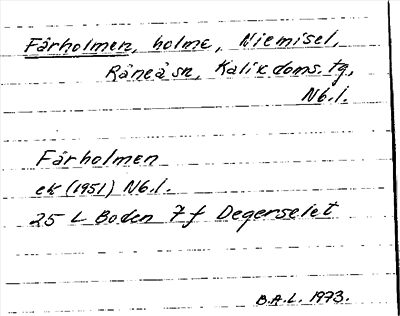 Fårholmen, holme, Niemisel,
Råneå sn, Kalix doms. tg,
Nb.l.
Fårholmen
ek (1951) Nb.l.
25 L Boden 7 f Degerselet
B.A.L. 1973.